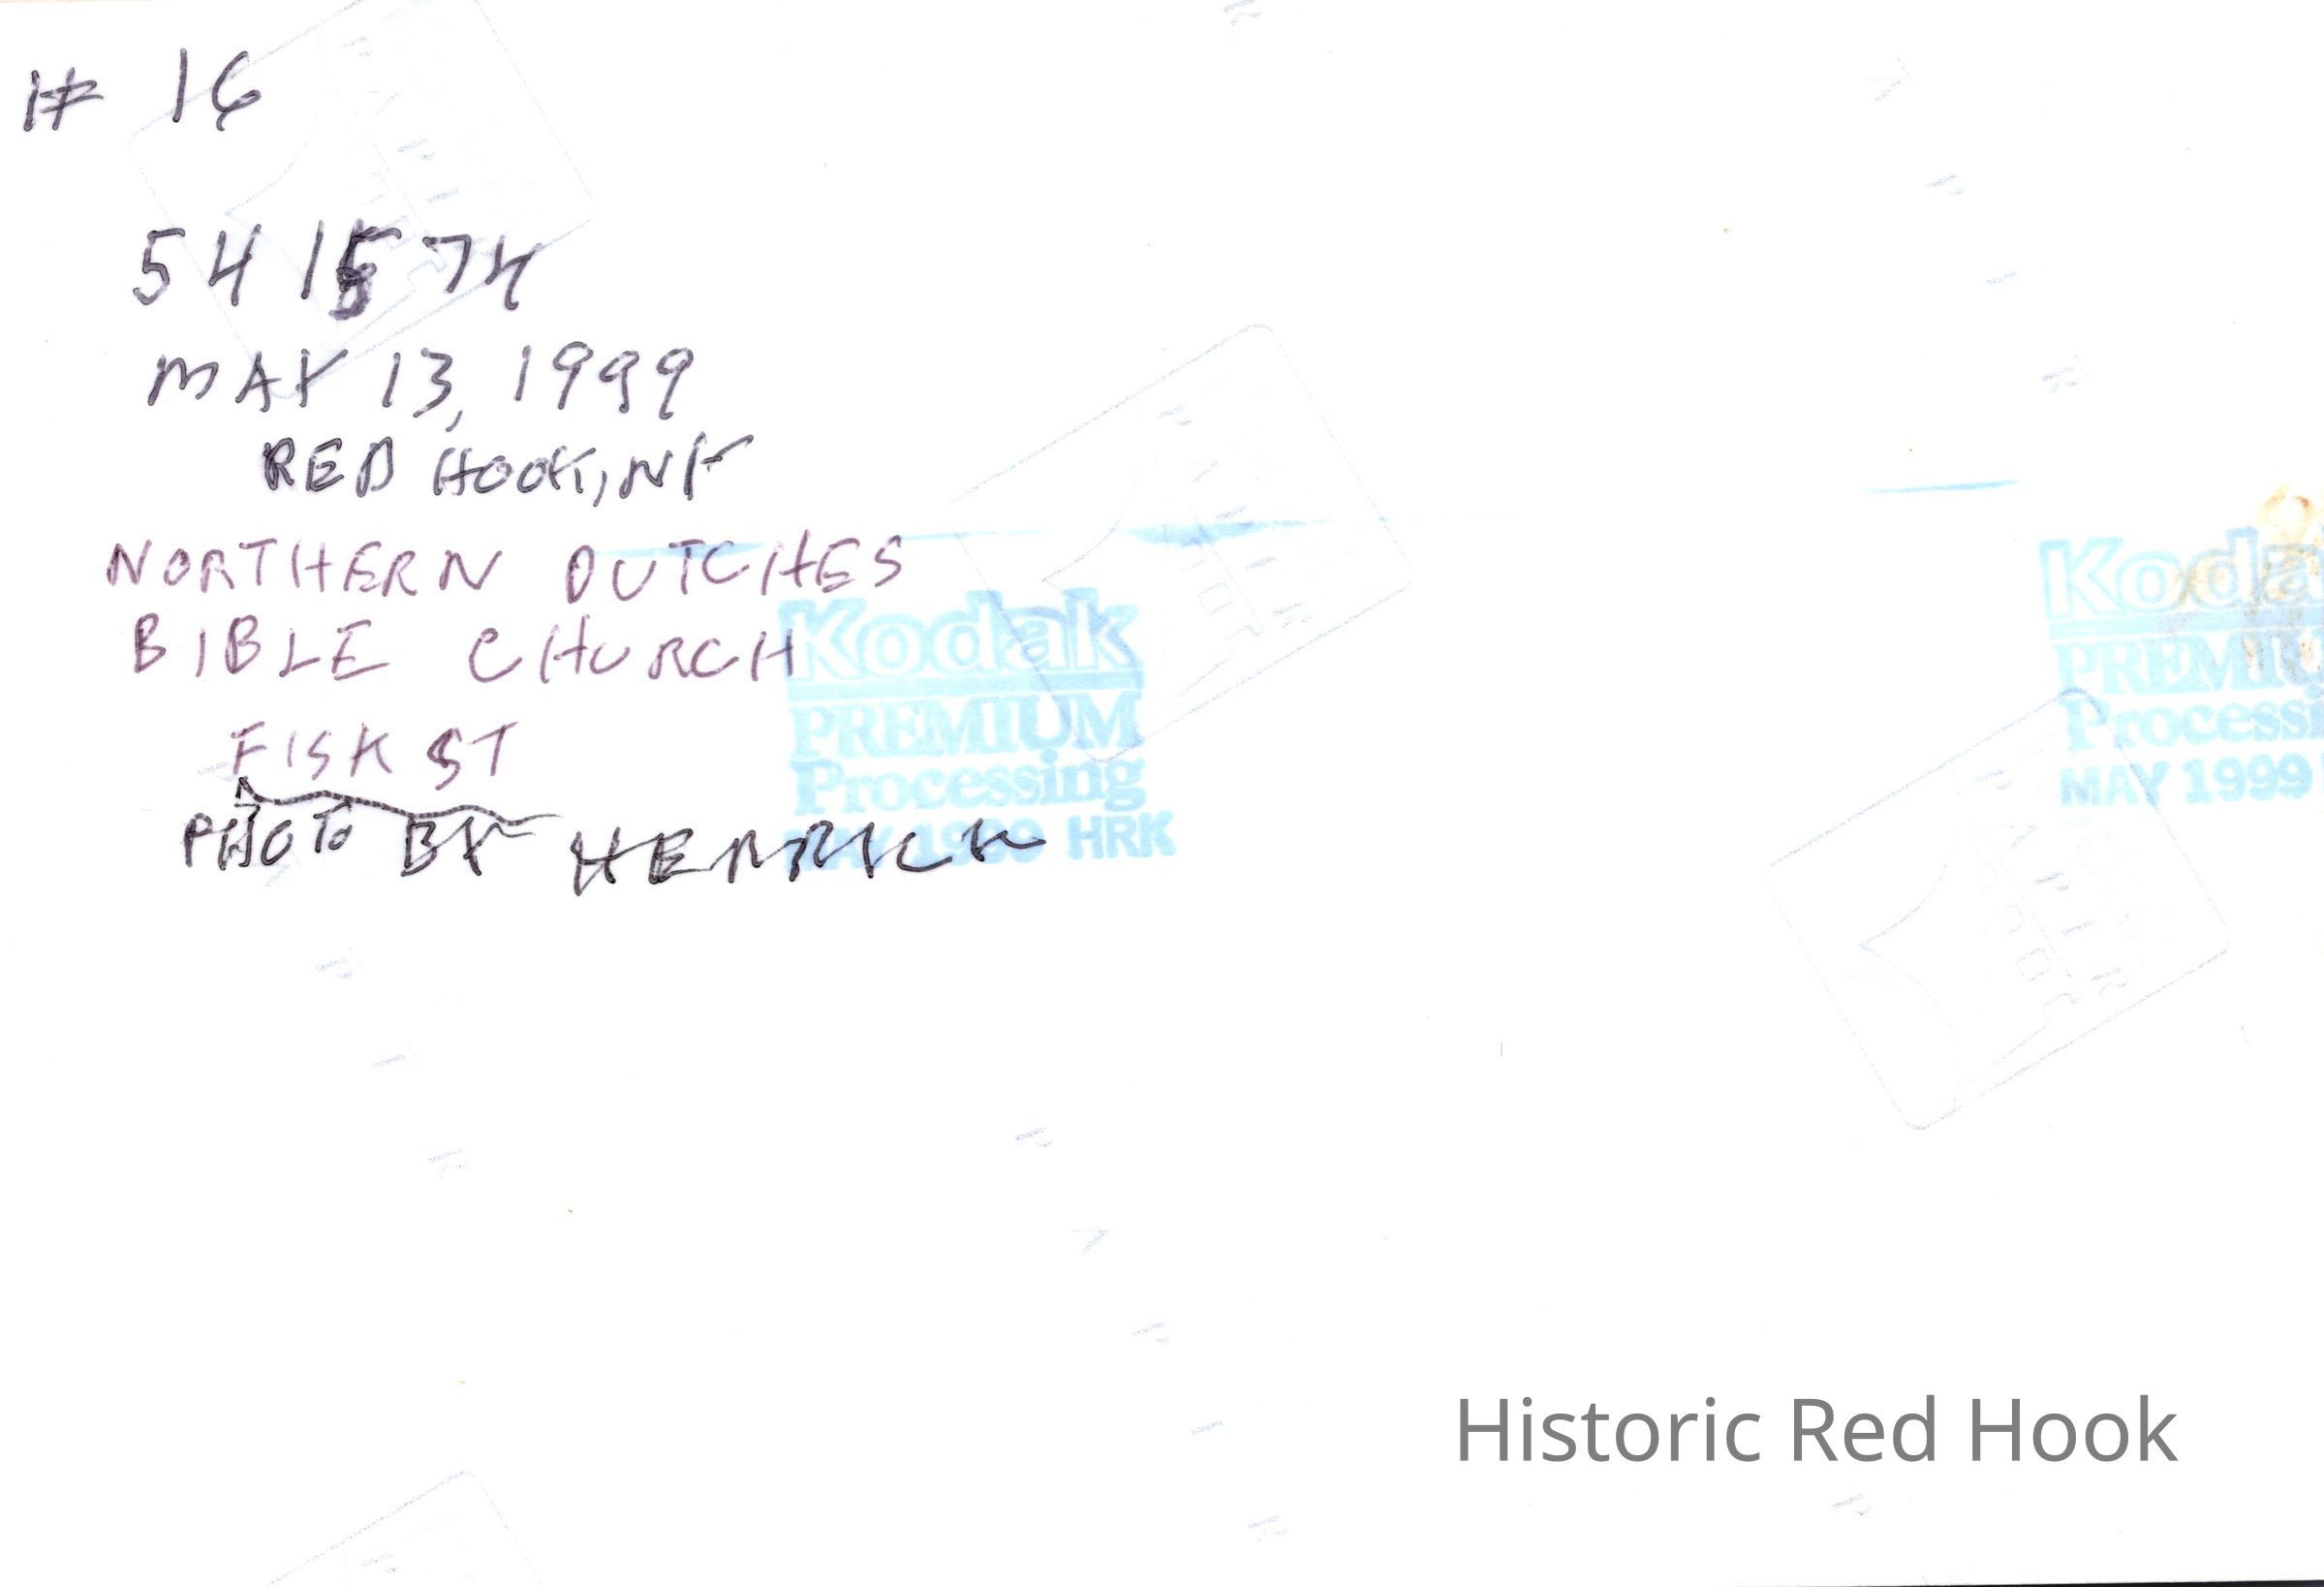 # 16
541574
MAY 13, 1999
RED HOOK, NY
NORTHERN DUTCHES
BIBLE CHURCH
FISK ST
PHOTO BY HERRICK
Kodak
PREMIUM
Processing
MAY 1999 HRK
Koda
PREMIU
Processi
MAY 1999
Historic Red Hook